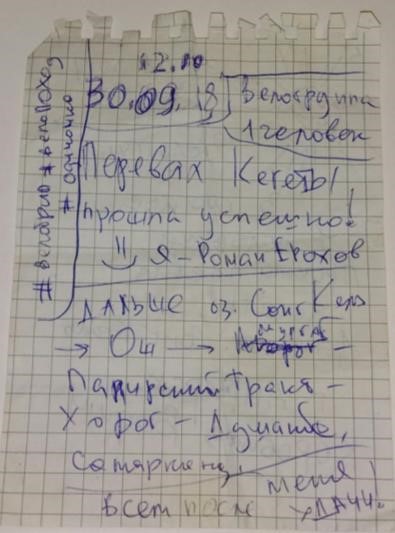 12.10
30.09.18
Велогруппа
1 человек
#велобрио #велопоход
#одиночно
Перевал Кегеты,
прошла успешно!
Я - Роман Ерохов
ДАЛЬШЕ оз. Сонг Кель
→ Ош → Мургаб -
Памирский тракт -
Хорог - Душанбе,
Самарканд,
Всем после меня
УДАЧИ!